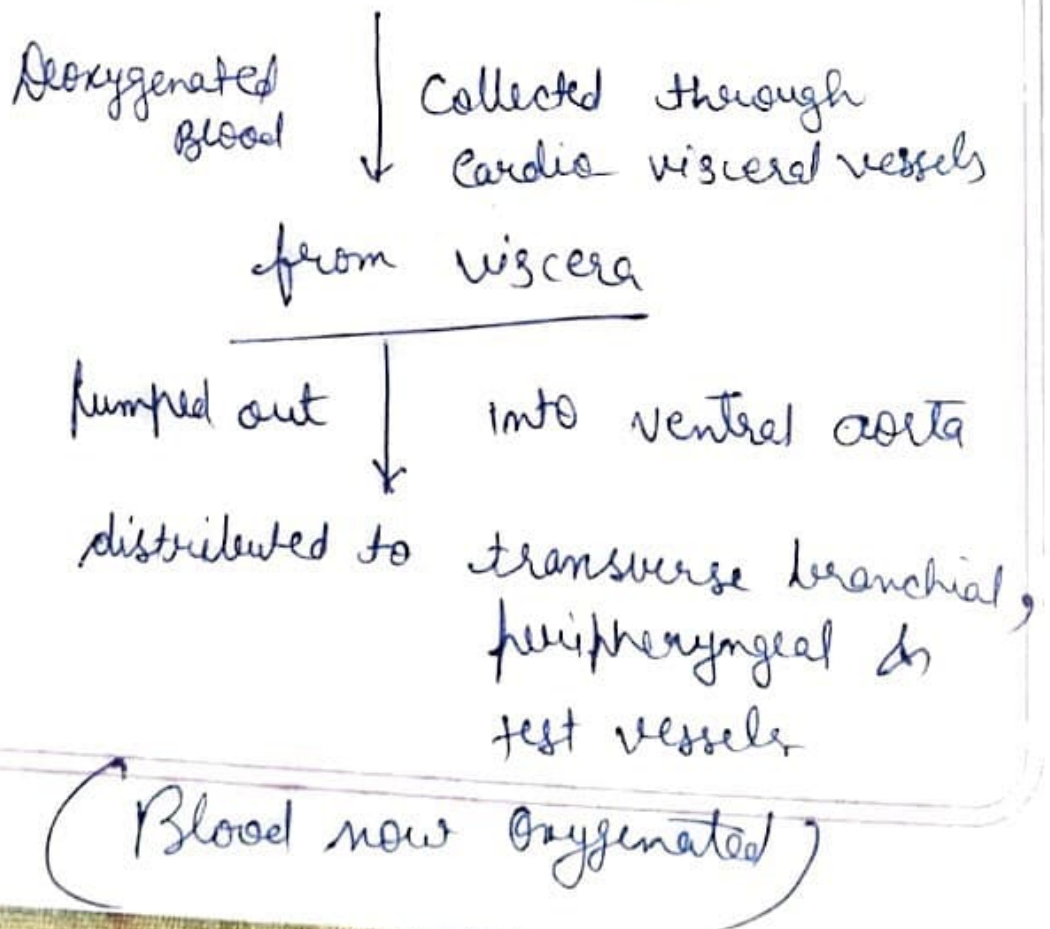 Deoxygenated
Blood
Collected through
Cardio visceral vessels
from viscera
Pumped out into ventral aorta
distributed to transverse branchial,
peripheryngeal &
test vessels
(Blood now Oxygenated)